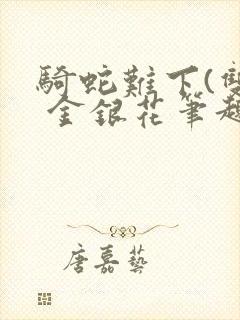 騎蛇難下(雙
金銀花筆趣
唐嘉藝